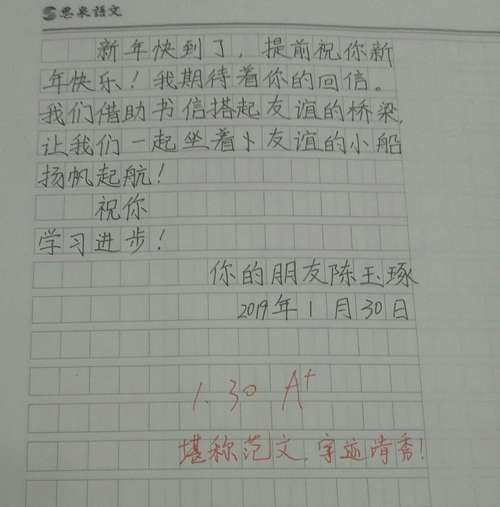 思泉语文
新年快到了，提前祝你新
年快乐！我期待着你的回信。
我们借助书信搭起友谊的桥梁，
让我们一起坐着友谊的小船
扬帆起航！
祝你
学习进步！
你的朋友陈玉琢
2019年1月30日
1.30 A+
堪称范文，字迹清秀！